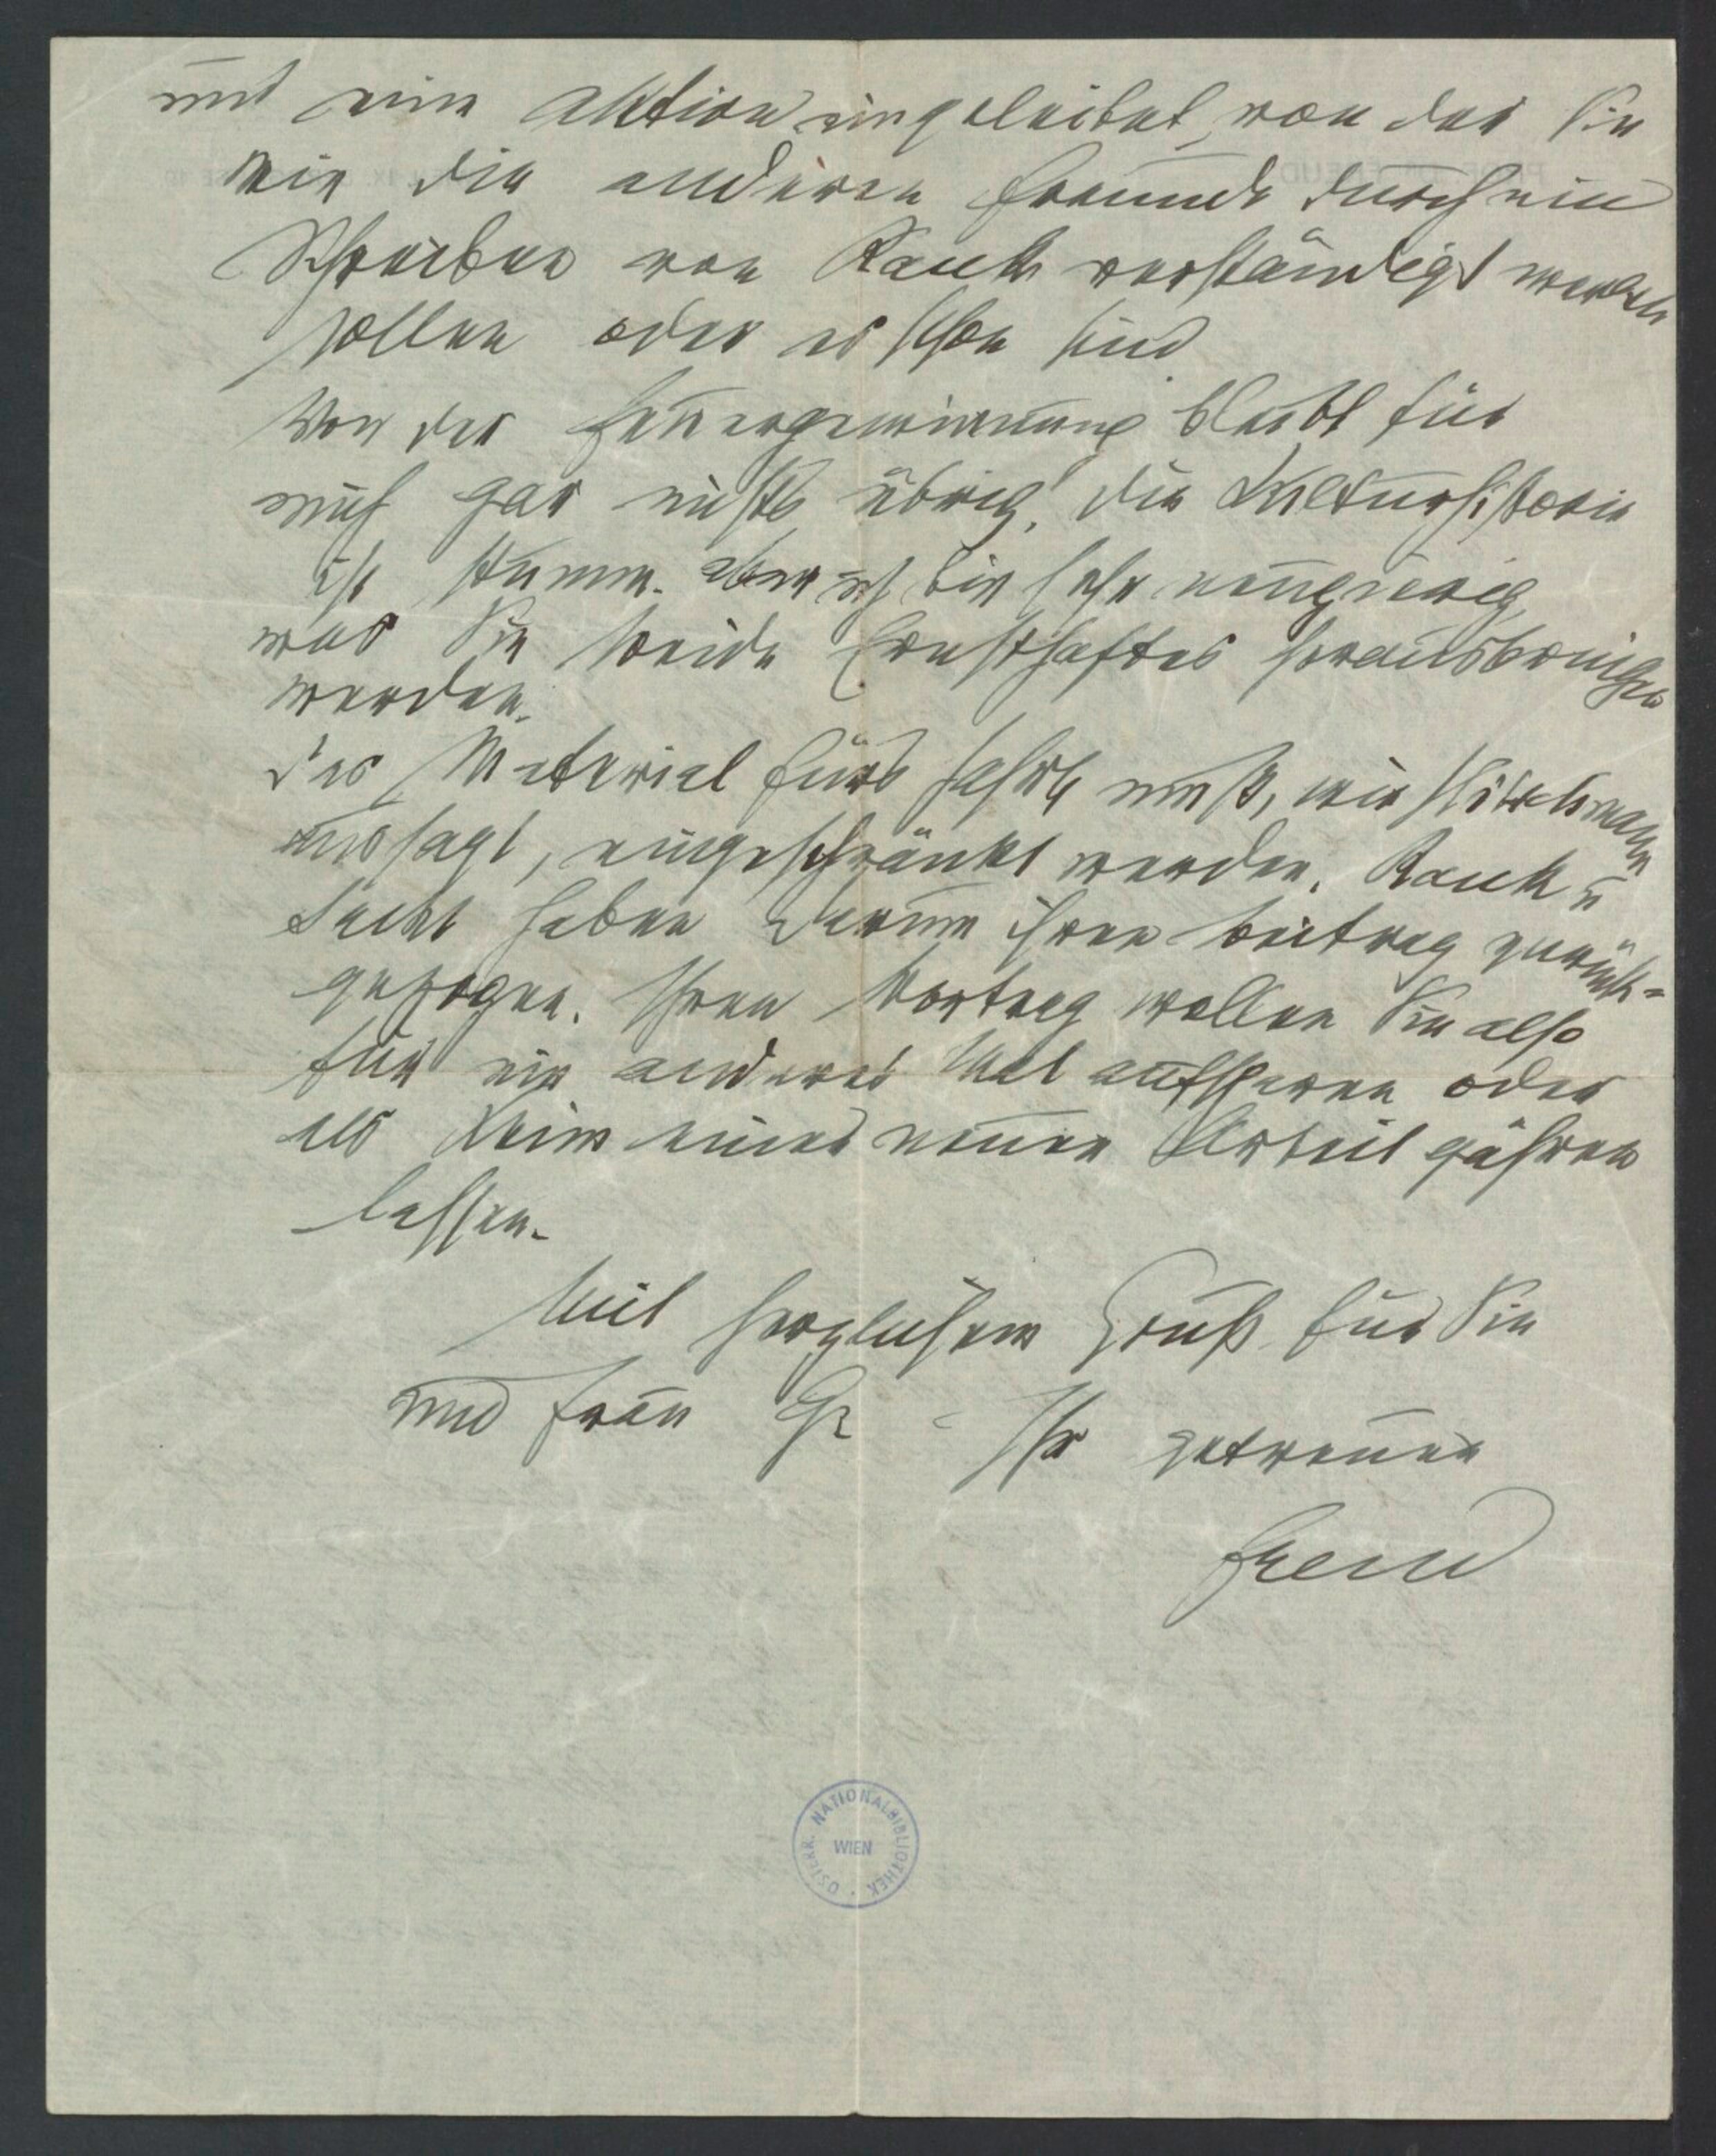 und eine Aktion eingeleitet, von der Sie
wie die anderen Freunde durch ein
Schreiben von Rank verständigt werden
sollen oder es schon sind.
Von der Feuergewinnung bleibt für
mich gar nichts übrig, die Kulturhistorie
ist stumm. Aber ich bin sehr neugierig,
was Sie beide Ernsthaftes herausbringen
werden.
Das Material fürs Jahrb muß, wie Hitschmann
aussagt, eingeschränkt werden. Rank u
Sachs haben darum ihren Beitrag zurück-
gezogen. Ihren Vortrag wollen Sie also
für ein anderes Mal aufsparen oder
als Keim einer neuen Arbeit gähren
lassen.
Mit herzlichem Gruß für Sie
und Frau G. Ihr getreuer
Freud
ÖSTERR. NATIONALBIBLIOTHEK
WIEN